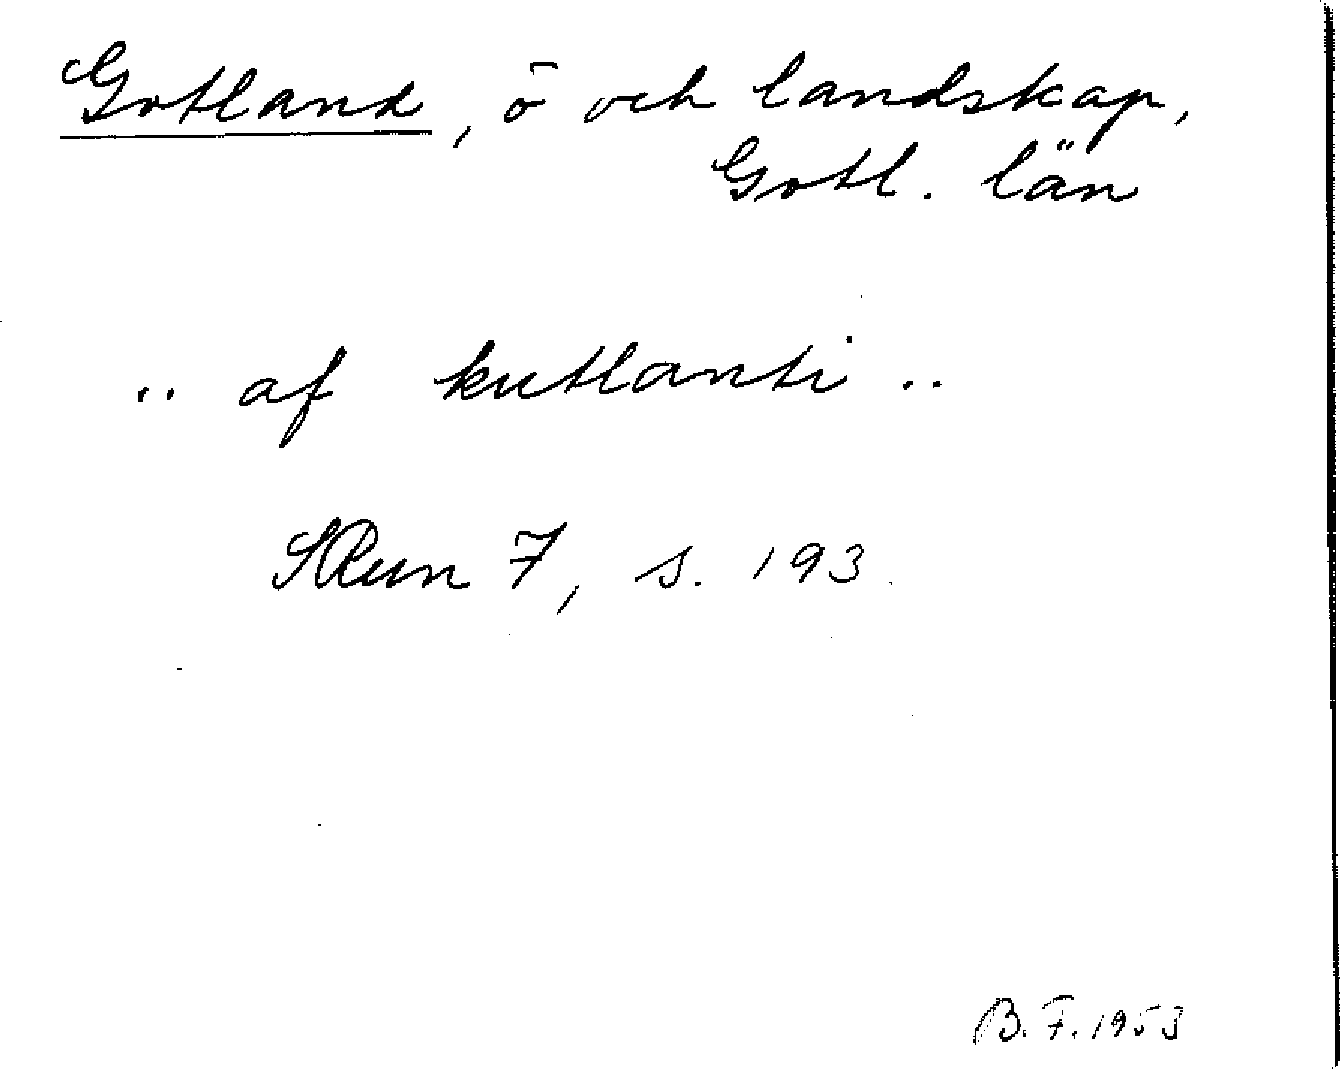 Gotland, ö och landskap,
Gotl. län
.. af kutlanti ..
SRun 7, s. 193.
B. F. 1953